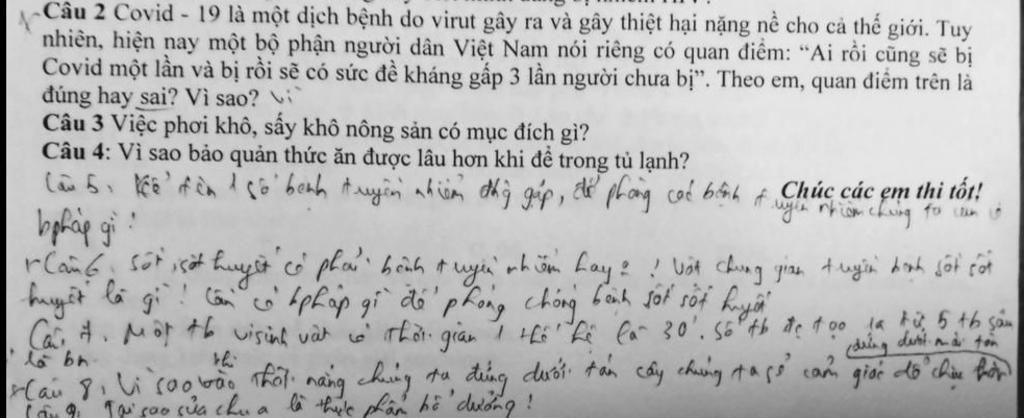 Câu 2 Covid - 19 là một dịch bệnh do virut gây ra và gây thiệt hại nặng nề cho cả thế giới. Tuy
nhiên, hiện nay một bộ phận người dân Việt Nam nói riêng có quan điểm: “Ai rồi cũng sẽ bị
Covid một lần và bị rồi sẽ có sức đề kháng gấp 3 lần người chưa bị”. Theo em, quan điểm trên là
đúng hay sai? Vì sao? Vì
Câu 3 Việc phơi khô, sấy khô nông sản có mục đích gì?
Câu 4: Vì sao bảo quản thức ăn được lâu hơn khi để trong tủ lạnh?
Câu 5, Kể tên 1 số bệnh truyền nhiễm gặp, để phòng các bệnh truyền nhiễm chúng ta cần có
Chúc các em thi tốt!
bpháp gì?
Câu 6, sốt xuất huyết có phải bệnh truyền nhiễm hay ? Vật trung gian truyền bệnh sốt xuất
huyết là gì? Cần có bpháp gì để phòng chống bệnh sốt xuất huyết
Một tb vi sinh vật có thời gian 1 thế hệ là 30'. Số tb đc tạo ra từ 5 tb sau
là bn
đứng dưới mái tôn
Câu 8, Vì sao vào trời nắng chúng ta đứng dưới tán cây chúng ta sẽ cảm giác dễ chịu hơn
Câu 9, Tại sao sữa chua là thực phẩm bổ dưỡng!